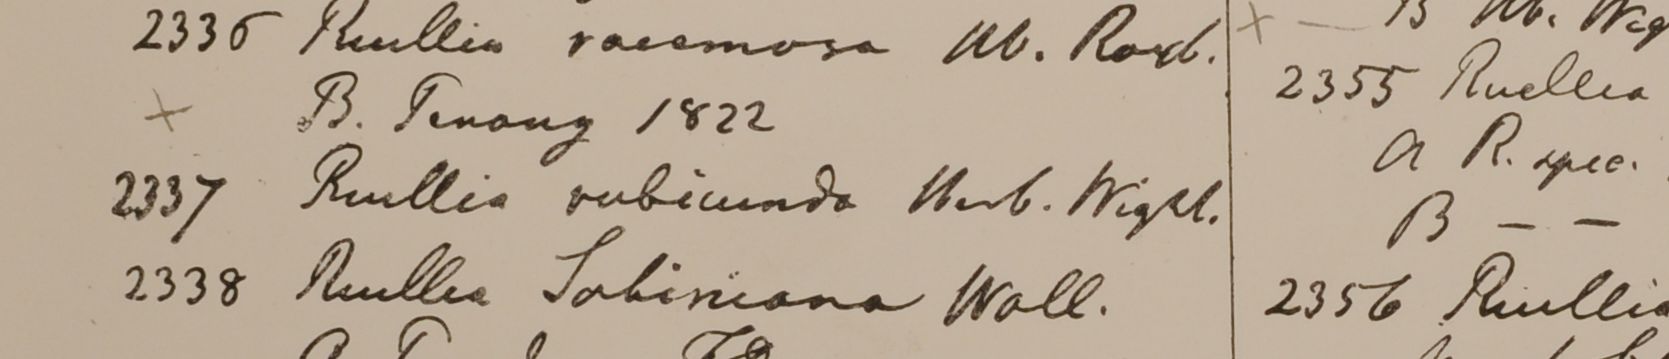 2336 Ruellia racemosa Hb. Roxb.
B. Penang 1822
2337 Ruellia rubicunda Herb. Wight.
2338 Ruellia Sabiniana Wall.
B Hb. Wig
2355 Ruellia
a R. spec.
B — —
2356 Ruellia